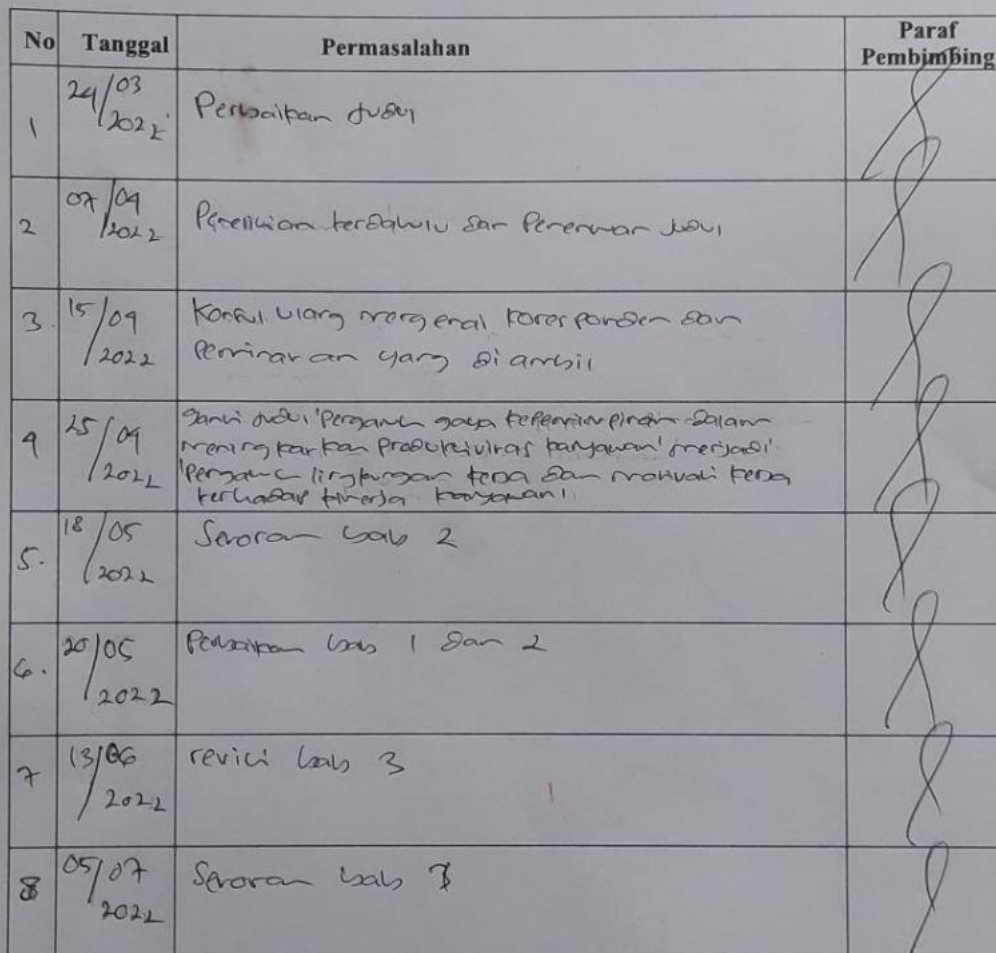 No Tanggal Permasalahan Paraf Pembimbing
1 24/03/2022 Perbaikan judul
2 07/04/2022 Penelitian terdahulu dan Penentuan judul
3. 15/04/2022 Konsul ulang mengenai koresponden dan
yang diambil
4 25/04/2022 Ganti judul 'Pengaruh gaya kepemimpinan dalam
meningkatkan Produktivitas karyawan' menjadi
'Pengaruh lingkungan kerja dan motivasi kerja
terhadap kinerja karyawan'.
5. 18/05/2022 Setoran bab 2
6. 20/05/2022 Perbaikan bab 1 dan 2
7 13/06/2022 revisi bab 3
8 05/07/2022 Setoran bab